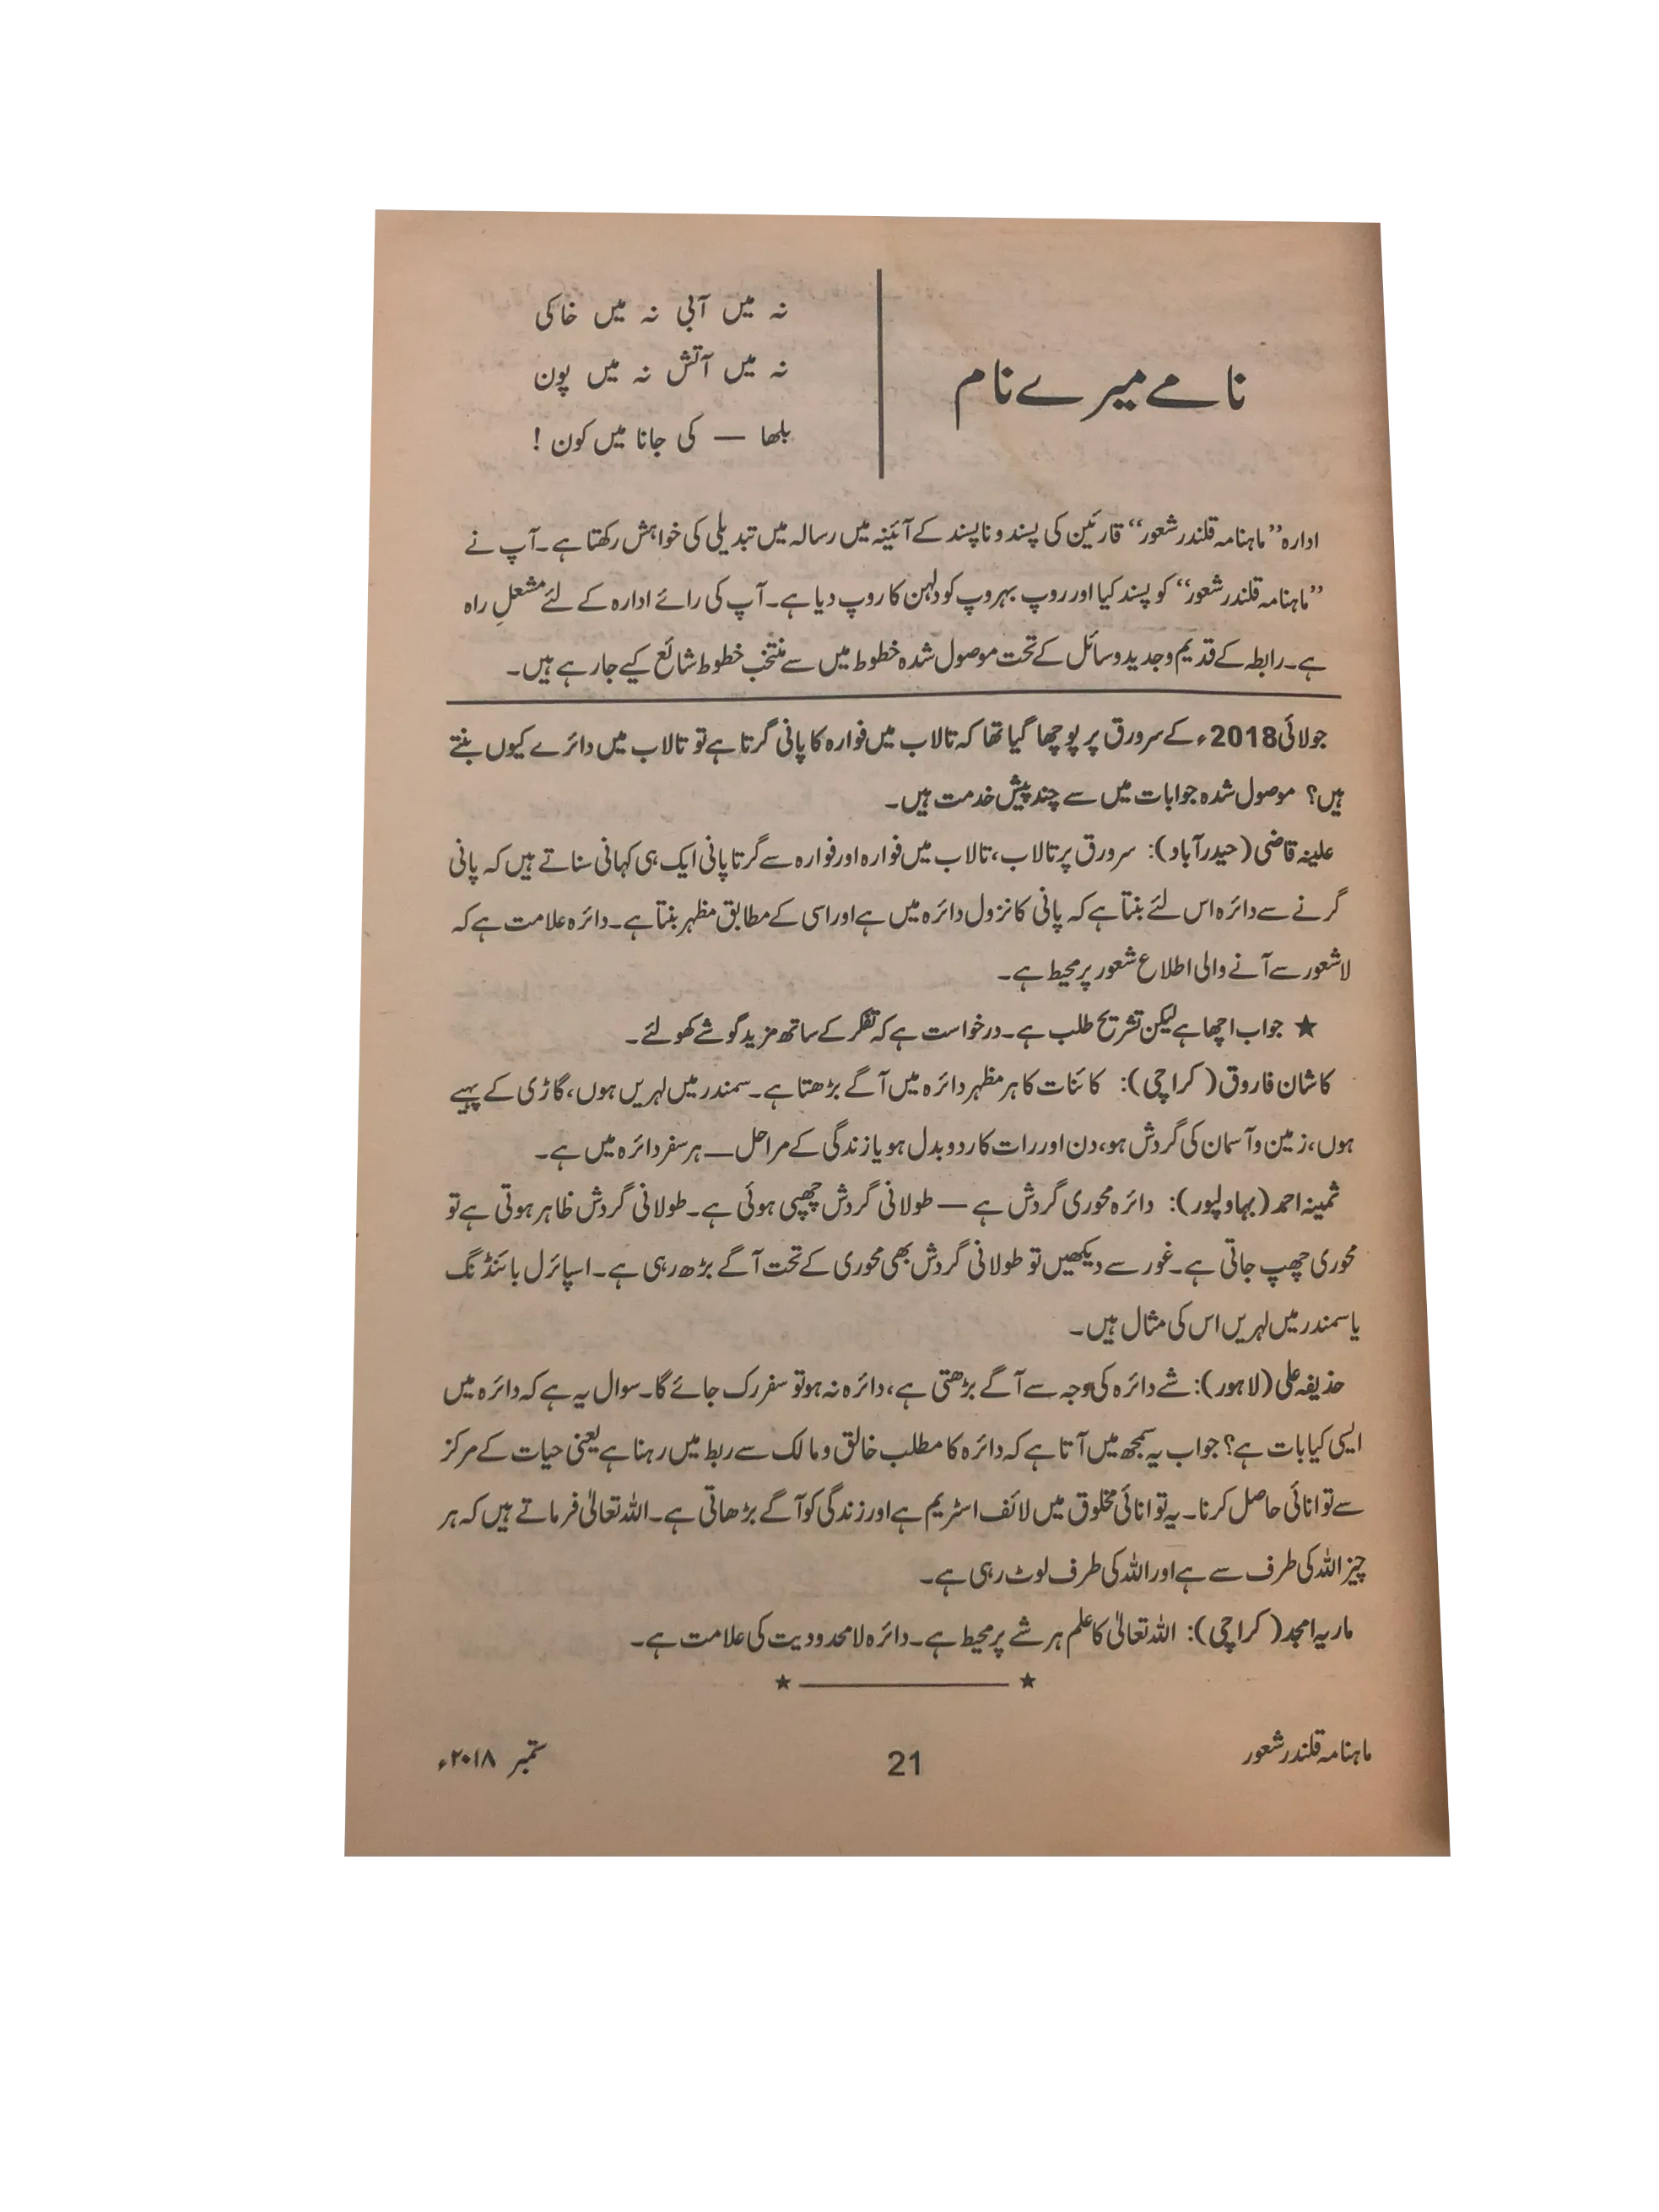 نامے میرے نام
نہ میں آبی نہ میں خاکی
نہ میں آتش نہ میں پون
بلھا — کی جانا میں کون !
ادارہ ”ماہنامہ قلندر شعور“ قارئین کی پسند و ناپسند کے آئینہ میں رسالہ میں تبدیلی کی خواہش رکھتا ہے۔ آپ نے
”ماہنامہ قلندر شعور“ کو پسند کیا اور روپ بہروپ کو دلہن کا روپ دیا ہے۔ آپ کی رائے ادارہ کے لئے مشعلِ راہ
ہے۔ رابطہ کے قدیم و جدید وسائل کے تحت موصول شدہ خطوط میں سے منتخب خطوط شائع کیے جا رہے ہیں۔
جولائی 2018ء کے سرورق پر پوچھا گیا تھا کہ تالاب میں فوارہ کا پانی گرتا ہے تو تالاب میں دائرے کیوں بنتے
ہیں؟ موصول شدہ جوابات میں سے چند پیش خدمت ہیں۔
علینہ قاضی (حیدرآباد): سرورق پر تالاب، تالاب میں فوارہ اور فوارہ سے گرتا پانی ایک ہی کہانی سناتے ہیں کہ پانی
گرنے سے دائرہ اس لئے بنتا ہے کہ پانی کا نزول دائرہ میں ہے اور اسی کے مطابق مظہر بنتا ہے۔ دائرہ علامت ہے کہ
لاشعور سے آنے والی اطلاع شعور پر محیط ہے۔
★ جواب اچھا ہے لیکن تشریح طلب ہے۔ درخواست ہے کہ تفکر کے ساتھ مزید گوشے کھولئے۔
کاشان فاروق (کراچی): کائنات کا ہر مظہر دائرہ میں آگے بڑھتا ہے۔ سمندر میں لہریں ہوں، گاڑی کے پہیے
ہوں، زمین و آسمان کی گردش ہو، دن اور رات کا ردوبدل ہو یا زندگی کے مراحل — ہر سفر دائرہ میں ہے۔
ثمینہ احمد (بہاولپور): دائرہ محوری گردش ہے — طولانی گردش چھپی ہوئی ہے۔ طولانی گردش ظاہر ہوتی ہے تو
محوری چھپ جاتی ہے۔ غور سے دیکھیں تو طولانی گردش بھی محوری کے تحت آگے بڑھ رہی ہے۔ اسپائرل بائنڈنگ
یا سمندر میں لہریں اس کی مثال ہیں۔
حذیفہ علی (لاہور): شے دائرہ کی وجہ سے آگے بڑھتی ہے، دائرہ نہ ہو تو سفر رک جائے گا۔ سوال یہ ہے کہ دائرہ میں
ایسی کیا بات ہے؟ جواب یہ سمجھ میں آتا ہے کہ دائرہ کا مطلب خالق و مالک سے ربط میں رہنا ہے یعنی حیات کے مرکز
سے توانائی حاصل کرنا۔ یہ توانائی مخلوق میں لائف اسٹریم ہے اور زندگی کو آگے بڑھاتی ہے۔ اللہ تعالیٰ فرماتے ہیں کہ ہر
چیز اللہ کی طرف سے ہے اور اللہ کی طرف لوٹ رہی ہے۔
ماریہ امجد (کراچی): اللہ تعالیٰ کا علم ہر شے پر محیط ہے۔ دائرہ لامحدودیت کی علامت ہے۔
★ ——— ★
ماہنامہ قلندر شعور 21 ستمبر ۲۰۱۸ء